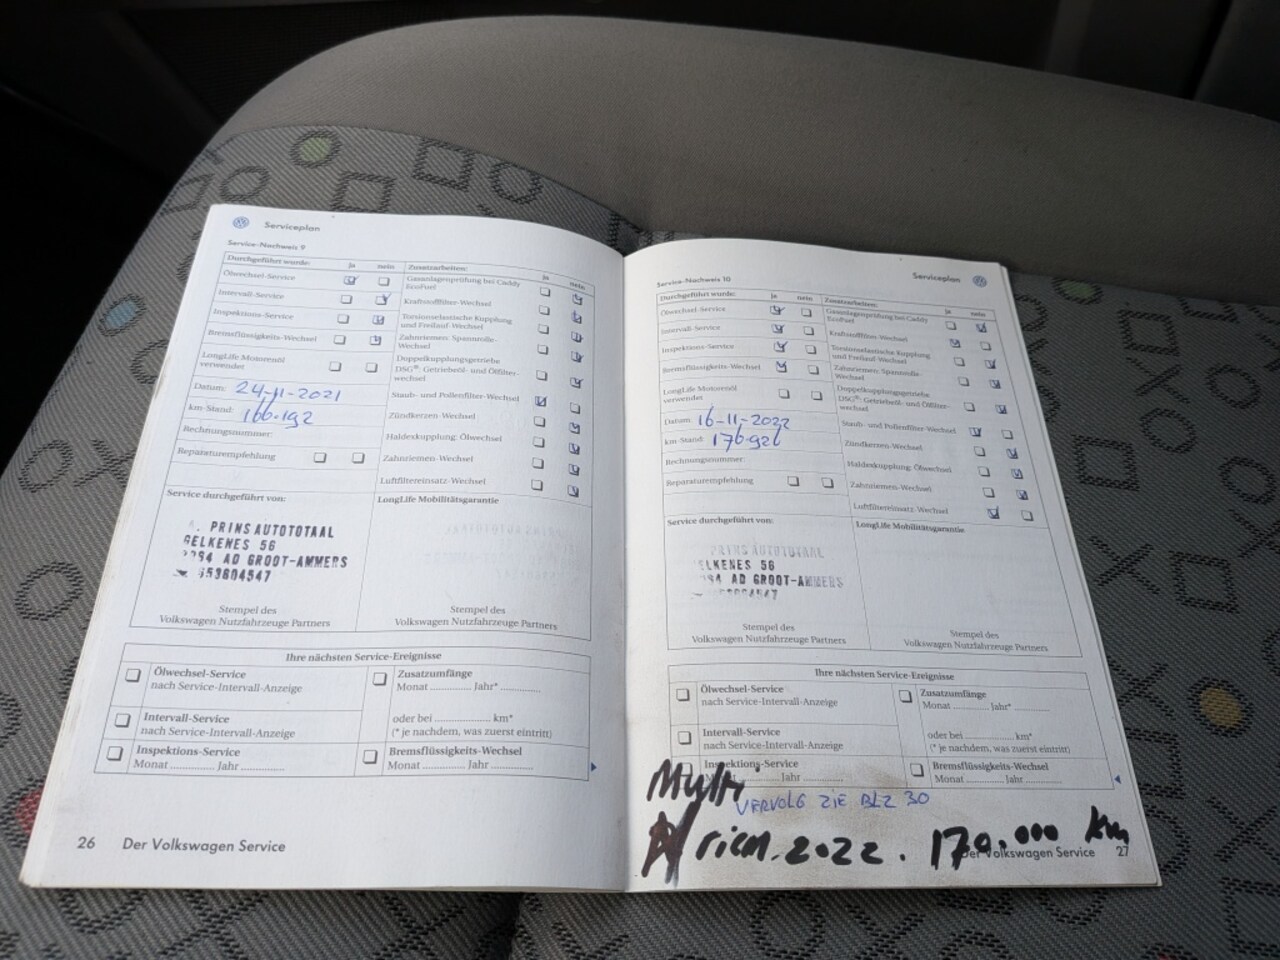 Serviceplan
Service-Nachweis 9
Durchgeführt wurde: ja nein
Ölwechsel-Service
Intervall-Service
Inspektions-Service
Bremsflüssigkeits-Wechsel
LongLife Motorenöl
verwendet
Datum: 24-11-2021
km-Stand: 166.192
Rechnungsnummer:
Reparaturempfehlung
Zusatzarbeiten: ja nein
Gasanlagenprüfung bei Caddy
EcoFuel
Kraftstofffilter-Wechsel
Torsionselastische Kupplung
und Freilauf-Wechsel
Zahnriemen: Spannrolle-
Wechsel
Doppelkupplungsgetriebe
DSG®: Getriebeöl- und Ölfilter-
wechsel
Staub- und Pollenfilter-Wechsel
Zündkerzen-Wechsel
Haldexkupplung: Ölwechsel
Zahnriemen-Wechsel
Luftfiltereinsatz-Wechsel
Service durchgeführt von:
PRINS AUTOTOTAAL
GELKENES 56
AD GROOT-AMMERS
653604547
Stempel des
Volkswagen Nutzfahrzeuge Partners
LongLife Mobilitätsgarantie
Stempel des
Volkswagen Nutzfahrzeuge Partners
Ihre nächsten Service-Ereignisse
Ölwechsel-Service
nach Service-Intervall-Anzeige
Intervall-Service
nach Service-Intervall-Anzeige
Inspektions-Service
Monat ............ Jahr ............
Zusatzumfänge
Monat ............ Jahr* ............
oder bei ................ km*
(* je nachdem, was zuerst eintritt)
Bremsflüssigkeits-Wechsel
Monat ............ Jahr ............
26 Der Volkswagen Service
Serviceplan
Service-Nachweis 10
Durchgeführt wurde: ja nein
Ölwechsel-Service
Intervall-Service
Inspektions-Service
Bremsflüssigkeits-Wechsel
LongLife Motorenöl
verwendet
Datum: 16-11-2022
km-Stand: 176.926
Rechnungsnummer:
Reparaturempfehlung
Zusatzarbeiten: ja nein
Gasanlagenprüfung bei Caddy
EcoFuel
Kraftstofffilter-Wechsel
Torsionselastische Kupplung
und Freilauf-Wechsel
Zahnriemen: Spannrolle-
Wechsel
Doppelkupplungsgetriebe
DSG®: Getriebeöl- und Ölfilter-
wechsel
Staub- und Pollenfilter-Wechsel
Zündkerzen-Wechsel
Haldexkupplung: Ölwechsel
Zahnriemen-Wechsel
Luftfiltereinsatz-Wechsel
Service durchgeführt von:
PRINS AUTOTOTAAL
ELKENES 56
AD GROOT-AMMERS
Stempel des
Volkswagen Nutzfahrzeuge Partners
LongLife Mobilitätsgarantie
Stempel des
Volkswagen Nutzfahrzeuge Partners
Ihre nächsten Service-Ereignisse
Ölwechsel-Service
nach Service-Intervall-Anzeige
Intervall-Service
nach Service-Intervall-Anzeige
Inspektions-Service
Monat ............ Jahr ............
Zusatzumfänge
Monat ............ Jahr* ............
oder bei ................ km*
(* je nachdem, was zuerst eintritt)
Bremsflüssigkeits-Wechsel
Monat ............ Jahr ............
Multi
VERVOLG ZIE BLZ 30
riem. 2022. 170.000 km
Der Volkswagen Service 27